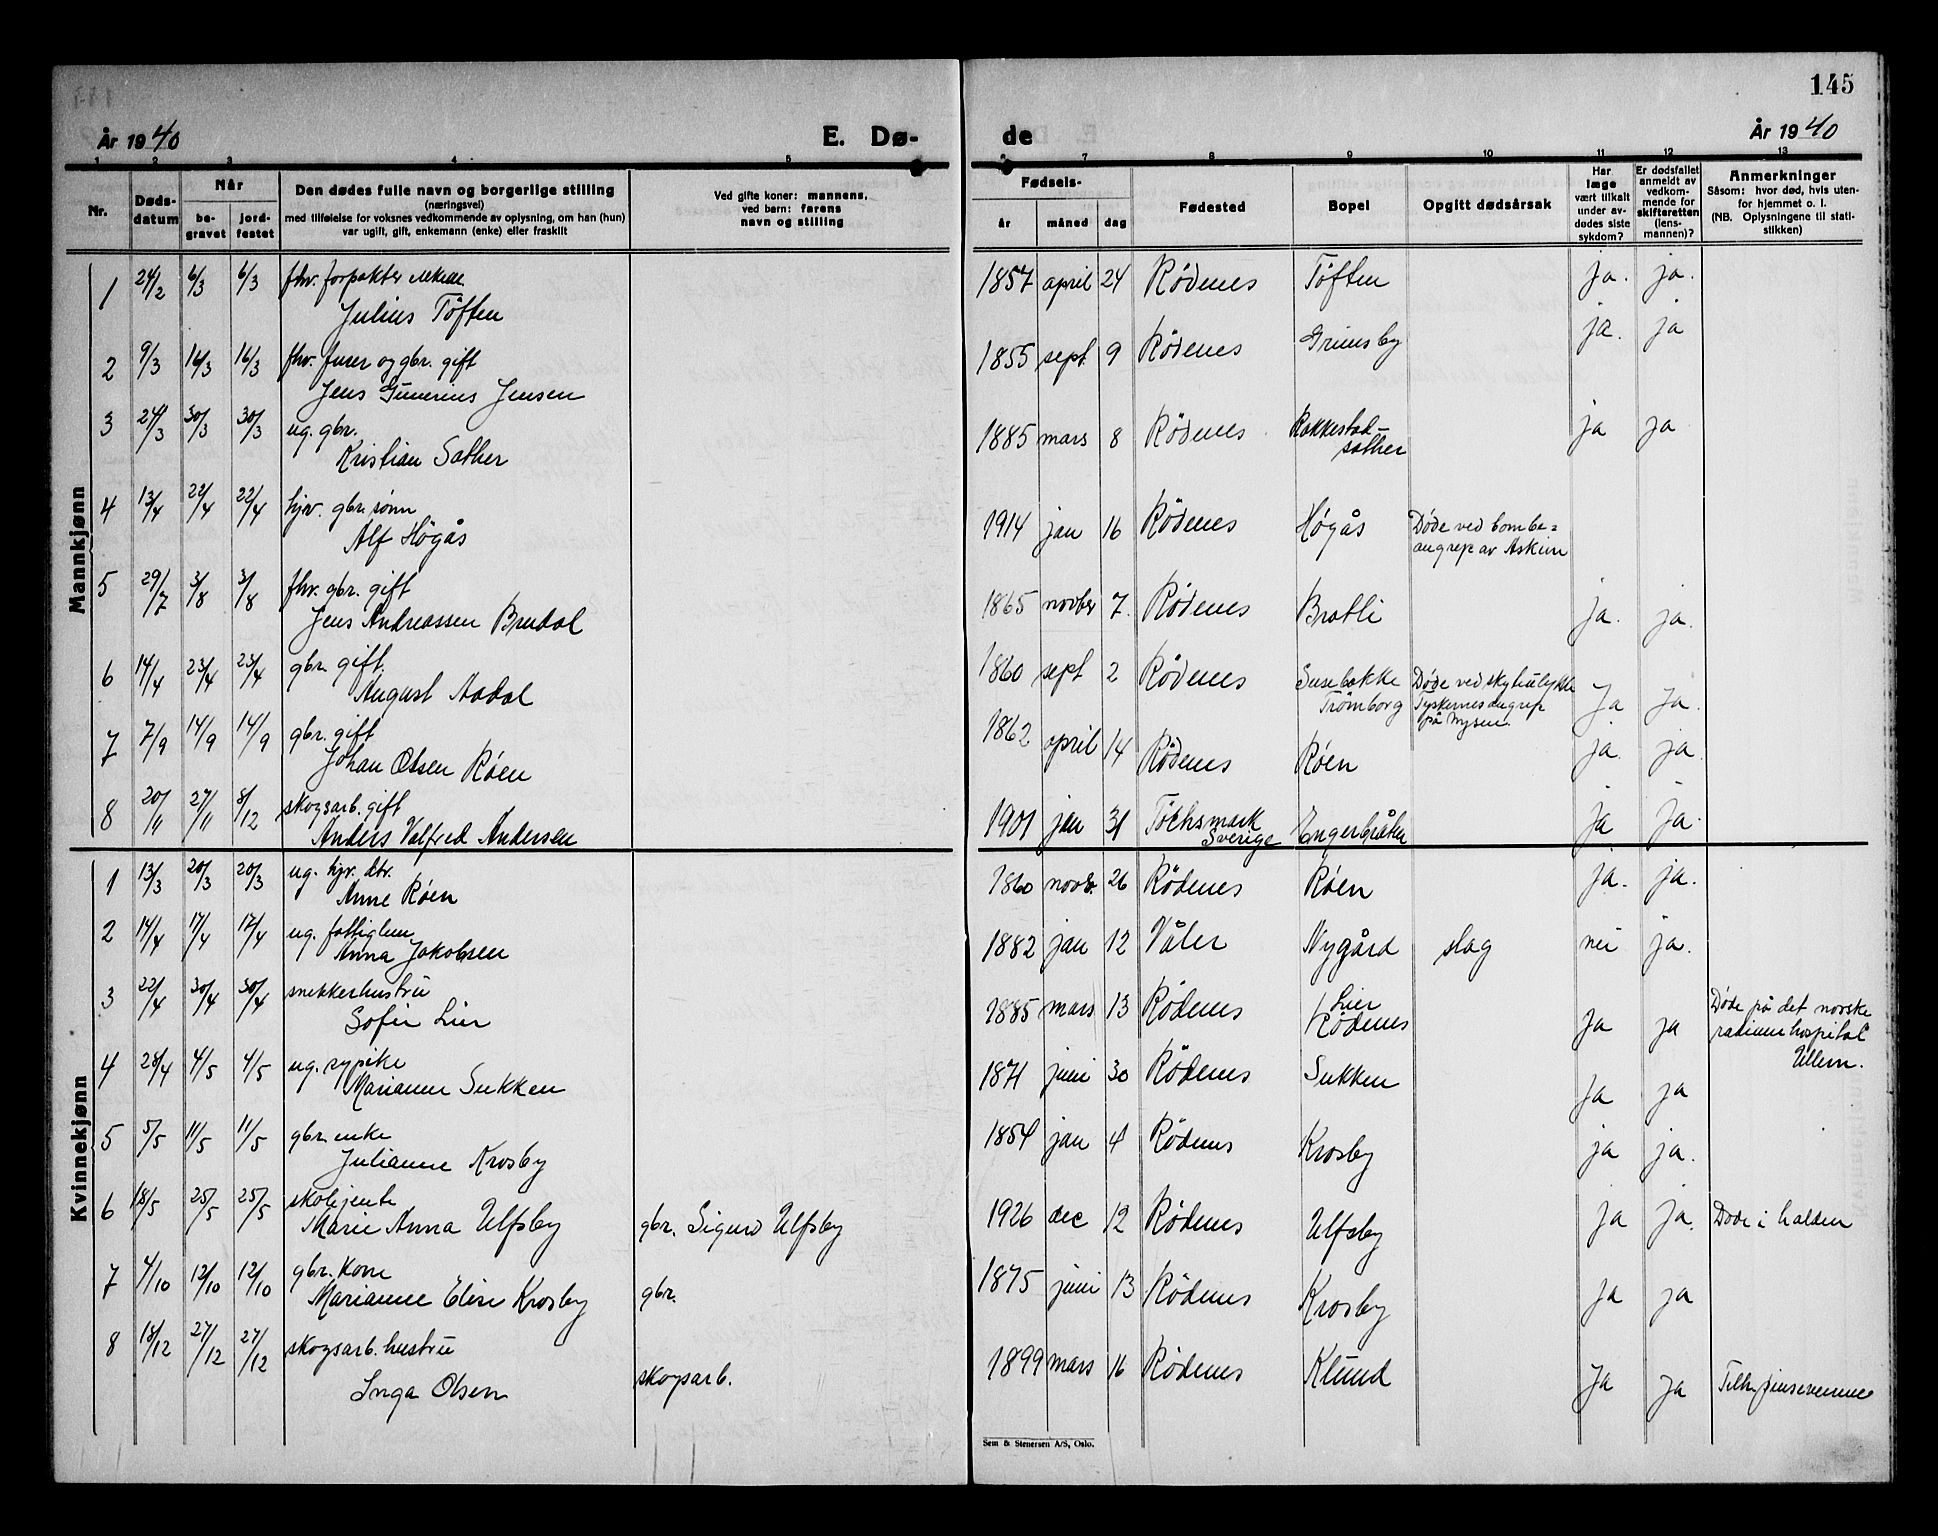 145
År 1940 E. Dø-
de År 1940
1 2 3 4 5
6 7 8 9 10 11 12 13
Nr.
Døds-
datum
Når
be-
gravet
jord-
festet
Den dødes fulle navn og borgerlige stilling
(næringsvei)
med tilføielse for voksnes vedkommende av oplysning, om han (hun)
var ugift, gift, enkemann (enke) eller fraskilt
Ved gifte koner: mannens,
ved barn: farens
navn og stilling
Fødsels-
år måned dag
Fødested
Bopel
Opgitt dødsårsak
Har
læge
vært tilkalt
under av-
dødes siste
sykdom?
Er dødsfallet
anmeldt av
vedkom-
mende for
skifteretten
(lens-
mannen)?
Anmerkninger
Såsom: hvor død, hvis uten-
for hjemmet o. l.
(NB. Oplysningene til stati-
stikken)
Mannkjønn
1 24/2 6/3 6/3 fhv. forpakter enkem.
Julius Töften
1857 april 24 Rødenes Töften ja. ja.
2 9/3 16/3 16/3 fhv. furer og gbr. gift
Jens Gunerius Jensen
1855 sept. 9 Rødenes Grimsby ja. ja
3 24/3 30/3 30/3 ug. gbr.
Kristian Sæther
1885 mars 8 Rødenes Rakkestad-
sæther ja ja
4 13/4 22/4 22/4 hjv. gbr. sønn
Alf Högås
1914 jan 16 Rødenes Høgås Døde ved bombe=
angrep av Askim
5 29/7 3/8 3/8 fhv. gbr. gift
Jens Andreassen Brudal
1865 novber 7. Rødenes Bratli ja. ja.
6 14/4 23/4 23/4 gbr. gift.
August Aadal
1860 sept 2 Rødenes Susebakke
Trømborg Døde ved
Tyskernes angrep
på Mysen Ja Ja.
7 7/9 14/9 14/9 gbr. gift
Johan Olsen Røen
1862 april 14 Rødenes Røen ja. ja.
8 20/11 27/11 8/12 skogsarb. gift
Anders Valfred Andersen
1901 jan 31 Töcksmark
Sverige Engerbråten ja ja.
Kvinnekjønn
1 13/3 20/3 20/3 ug. hjv. dtr.
Anne Røen
1860 novb. 26 Rødenes Røen ja. ja.
2 14/4 17/4 17/4 ug. fattiglem
Anna Jakobsen
1882 jan 12 Våler Nygård slag nei ja.
3 22/4 30/4 30/4 snekkerhustru
Sofie Lier
1885 mars 13 Rødenes Lier
Rödenes Ja ja Døde på det norske
radiumhospital
Ullern.
4 28/4 4/5 4/5 ug. sypike
Marianne Sukken
1871 juni 30 Rødenes Sukken Ja ja
5 5/5 11/5 11/5 gbr. enke
Julianne Krosby
1854 jan 4 Rødenes Krosby ja ja.
6 18/5 25/5 25/5 skolejente
Marie Anna Ulfsby gbr. Sigurd Ulfsby
1926 dec 12 Rødenes Ulfsby ja ja. Døde i halden
7 4/10 12/10 12/10 gbr. kone
Marianne Elise Krosby gbr.
1875 juni 13 Rødenes Krosby ja ja
8 18/12 27/12 27/12 skogsarb. hustru
Inga Olsen skogsarb.
1899 mars 16 Rødenes Klund Ja ja
Sem & Stenersen A/S, Oslo.